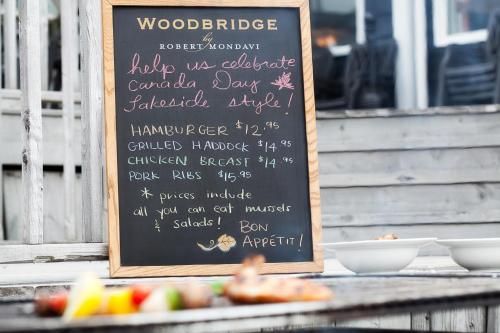 WOODBRIDGE
by
ROBERT MONDAVI
help us celebrate
Canada Day
lakeside style!
HAMBURGER $12.95
GRILLED HADDOCK $14.95
CHICKEN BREAST $14.95
PORK RIBS $15.95
* prices include
all you can eat mussels
& salads! BON
APPÉTIT!